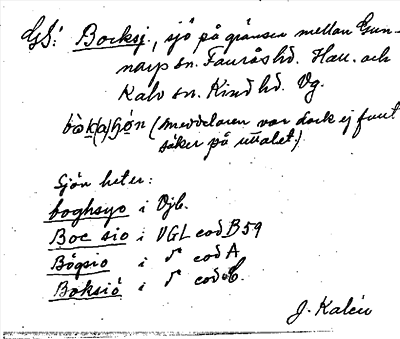 GS: Bocksj., sjö på gränsen mellan Gun-
narp sn. Fauråshd. Hall. och
Kalv sn. Kind hd. Vg.
bòk(a)ʃön (meddelaren var dock ej fullt
säker på uttalet.)
Sjön heter:
boghsyo i Vjb.
Boc sio i VGL cod B 59
Bögsio i d:o cod A
Boksiö i d:o cod C.
J. Kalén